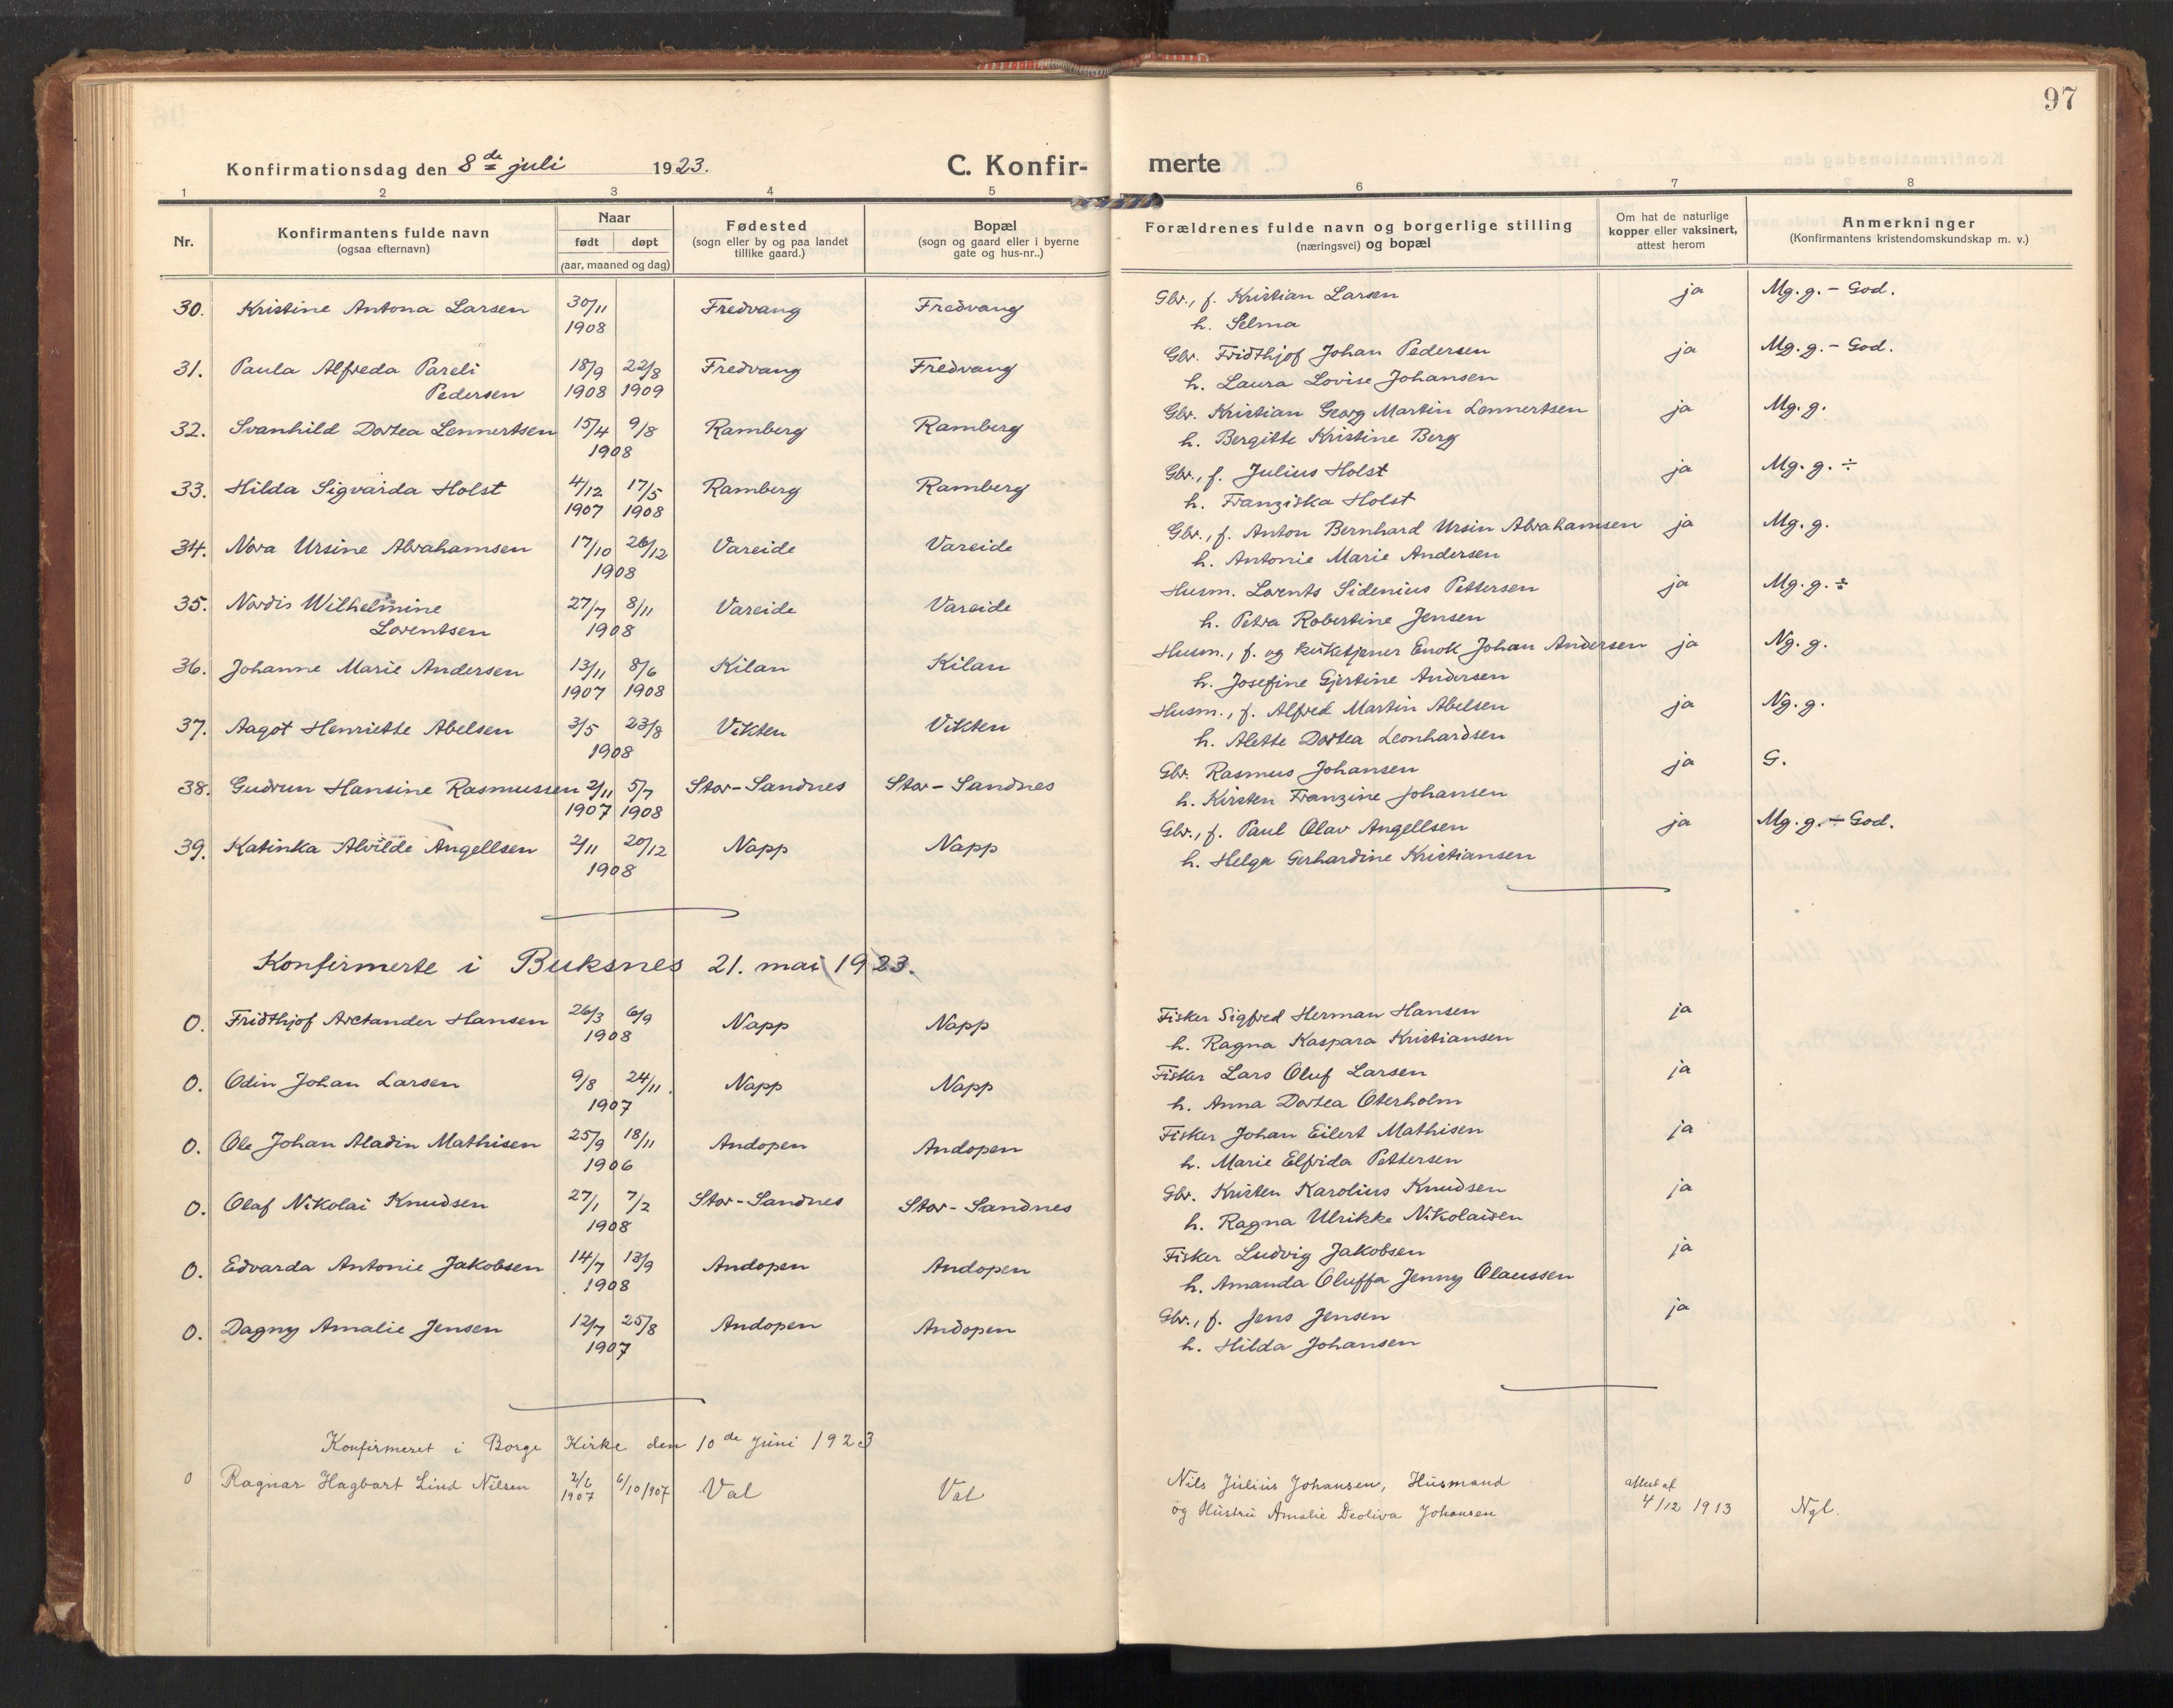 97
Konfirmationsdag den 8de juli 1923. C. Konfir- merte
1 2 3 4 5 6 7 8
Nr. Konfirmantens fulde navn (ogsaa efternavn) Naar født døpt (aar, maaned og dag) Fødested (sogn eller by og paa landet tillike gaard.) Bopæl (sogn og gaard eller i byerne gate og hus-nr..) Forældrenes fulde navn og borgerlige stilling (næringsvei) og bopæl Om hat de naturlige kopper eller vaksinert, attest herom Anmerkninger (Konfirmantens kristendomskundskap m. v.)
30. Kristine Antona Larsen 30/11 1908 Fredvang Fredvang Gbr., f. Kristian Larsen ja Mg. g. - God.
h. Selma
31. Paula Alfreda Pareli Pedersen 18/9 1908 22/8 1909 Fredvang Fredvang Gbr. Fridthjof Johan Pedersen ja Mg. g. - God.
h. Laura Lovise Johansen
32. Svanhild Dortea Lennertsen 15/4 9/8 1908 Ramberg Ramberg Gbr. Kristian Georg Martin Lennertsen ja Mg. g.
h. Bergitte Kristine Berg
33. Hilda Sigvarda Holst 4/12 1907 17/5 1908 Ramberg Ramberg Gbr., f. Julius Holst ja Mg. g. ÷
h. Franziska Holst
34. Nora Ursine Abrahamsen 17/10 26/12 1908 Vareide Vareide Gbr., f. Anton Bernhard Ursin Abrahamsen ja Mg. g.
h. Antonie Marie Andersen
35. Nordis Wilhelmine Lorentsen 27/7 8/11 1908 Vareide Vareide Husm. Lorents Sidenius Pettersen ja Mg. g. ÷
h. Petra Robertine Jensen
36. Johanne Marie Andersen 13/11 1907 8/6 1908 Kilan Kilan Husm., f. og kirketjener Enok Johan Andersen ja Ng. g.
h. Josefine Gjertine Andersen
37. Aagot Henriette Abelsen 3/5 23/8 1908 Vikten Vikten Husm., f. Alfred Martin Abelsen ja Ng. g.
h. Alette Dortea Leonhardsen
38. Gudrun Hansine Rasmussen 2/11 1907 5/7 1908 Stor-Sandnes Stor-Sandnes Gbr. Rasmus Johansen ja G.
h. Kirsten Franzine Johansen
39. Katinka Alvilde Angellsen 2/11 20/12 1908 Napp Napp Gbr., f. Paul Olav Angellsen ja Mg. g. - God.
h. Helga Gerhardine Kristiansen
Konfirmerte i Buksnes 21. mai 1923.
0. Fridthjof Arctander Hansen 26/3 6/9 1908 Napp Napp Fisker Sigfred Herman Hansen ja
h. Ragna Kaspara Kristiansen
0. Odin Johan Larsen 9/8 24/11. 1907 Napp Napp Fisker Lars Oluf Larsen ja
h. Anna Dortea Oterholm
0. Ole Johan Aladin Mathisen 25/9 18/11 1906 Andopen Andopen Fisker Johan Eilert Mathisen ja
h. Marie Elfrida Pettersen
0. Olaf Nikolai Knudsen 27/1 7/2 1908 Stor-Sandnes Stor-Sandnes Gbr. Kristen Karolius Knudsen ja
h. Ragna Ulrikke Nikolaisen
0. Edvarda Antonie Jakobsen 14/7 13/9 1908 Andopen Andopen Fisker Ludvig Jakobsen ja
h. Amanda Oluffa Jenny Olaussen
0. Dagny Amalie Jensen 12/7 25/8 1907 Andopen Andopen Gbr., f. Jens Jensen ja
h. Hilda Johansen
Konfirmeret i Borge Kirke den 10de Juni 1923
0 Ragnar Hagbart Lind Nilsen 2/6 1907 6/10/907 Val Val Nils Julius Johansen, Husmand attest af 4/12 1913 Ngl.
og Hustru Amalie Deoliva Johansen